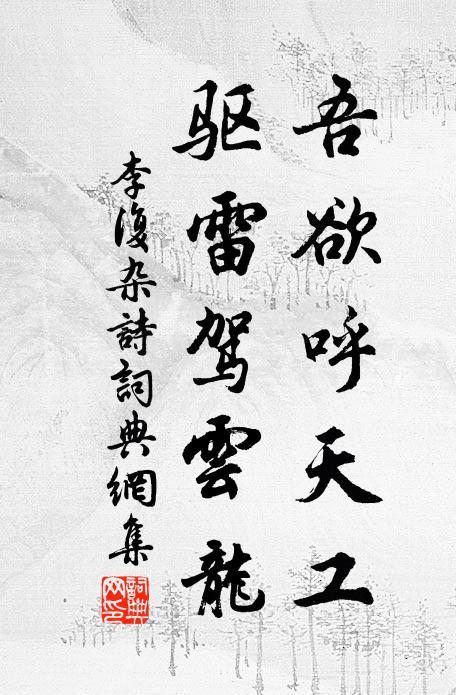 吾欲呼天工
驱雷驾雲龍
李復杂詩詞典網集
詞典网印